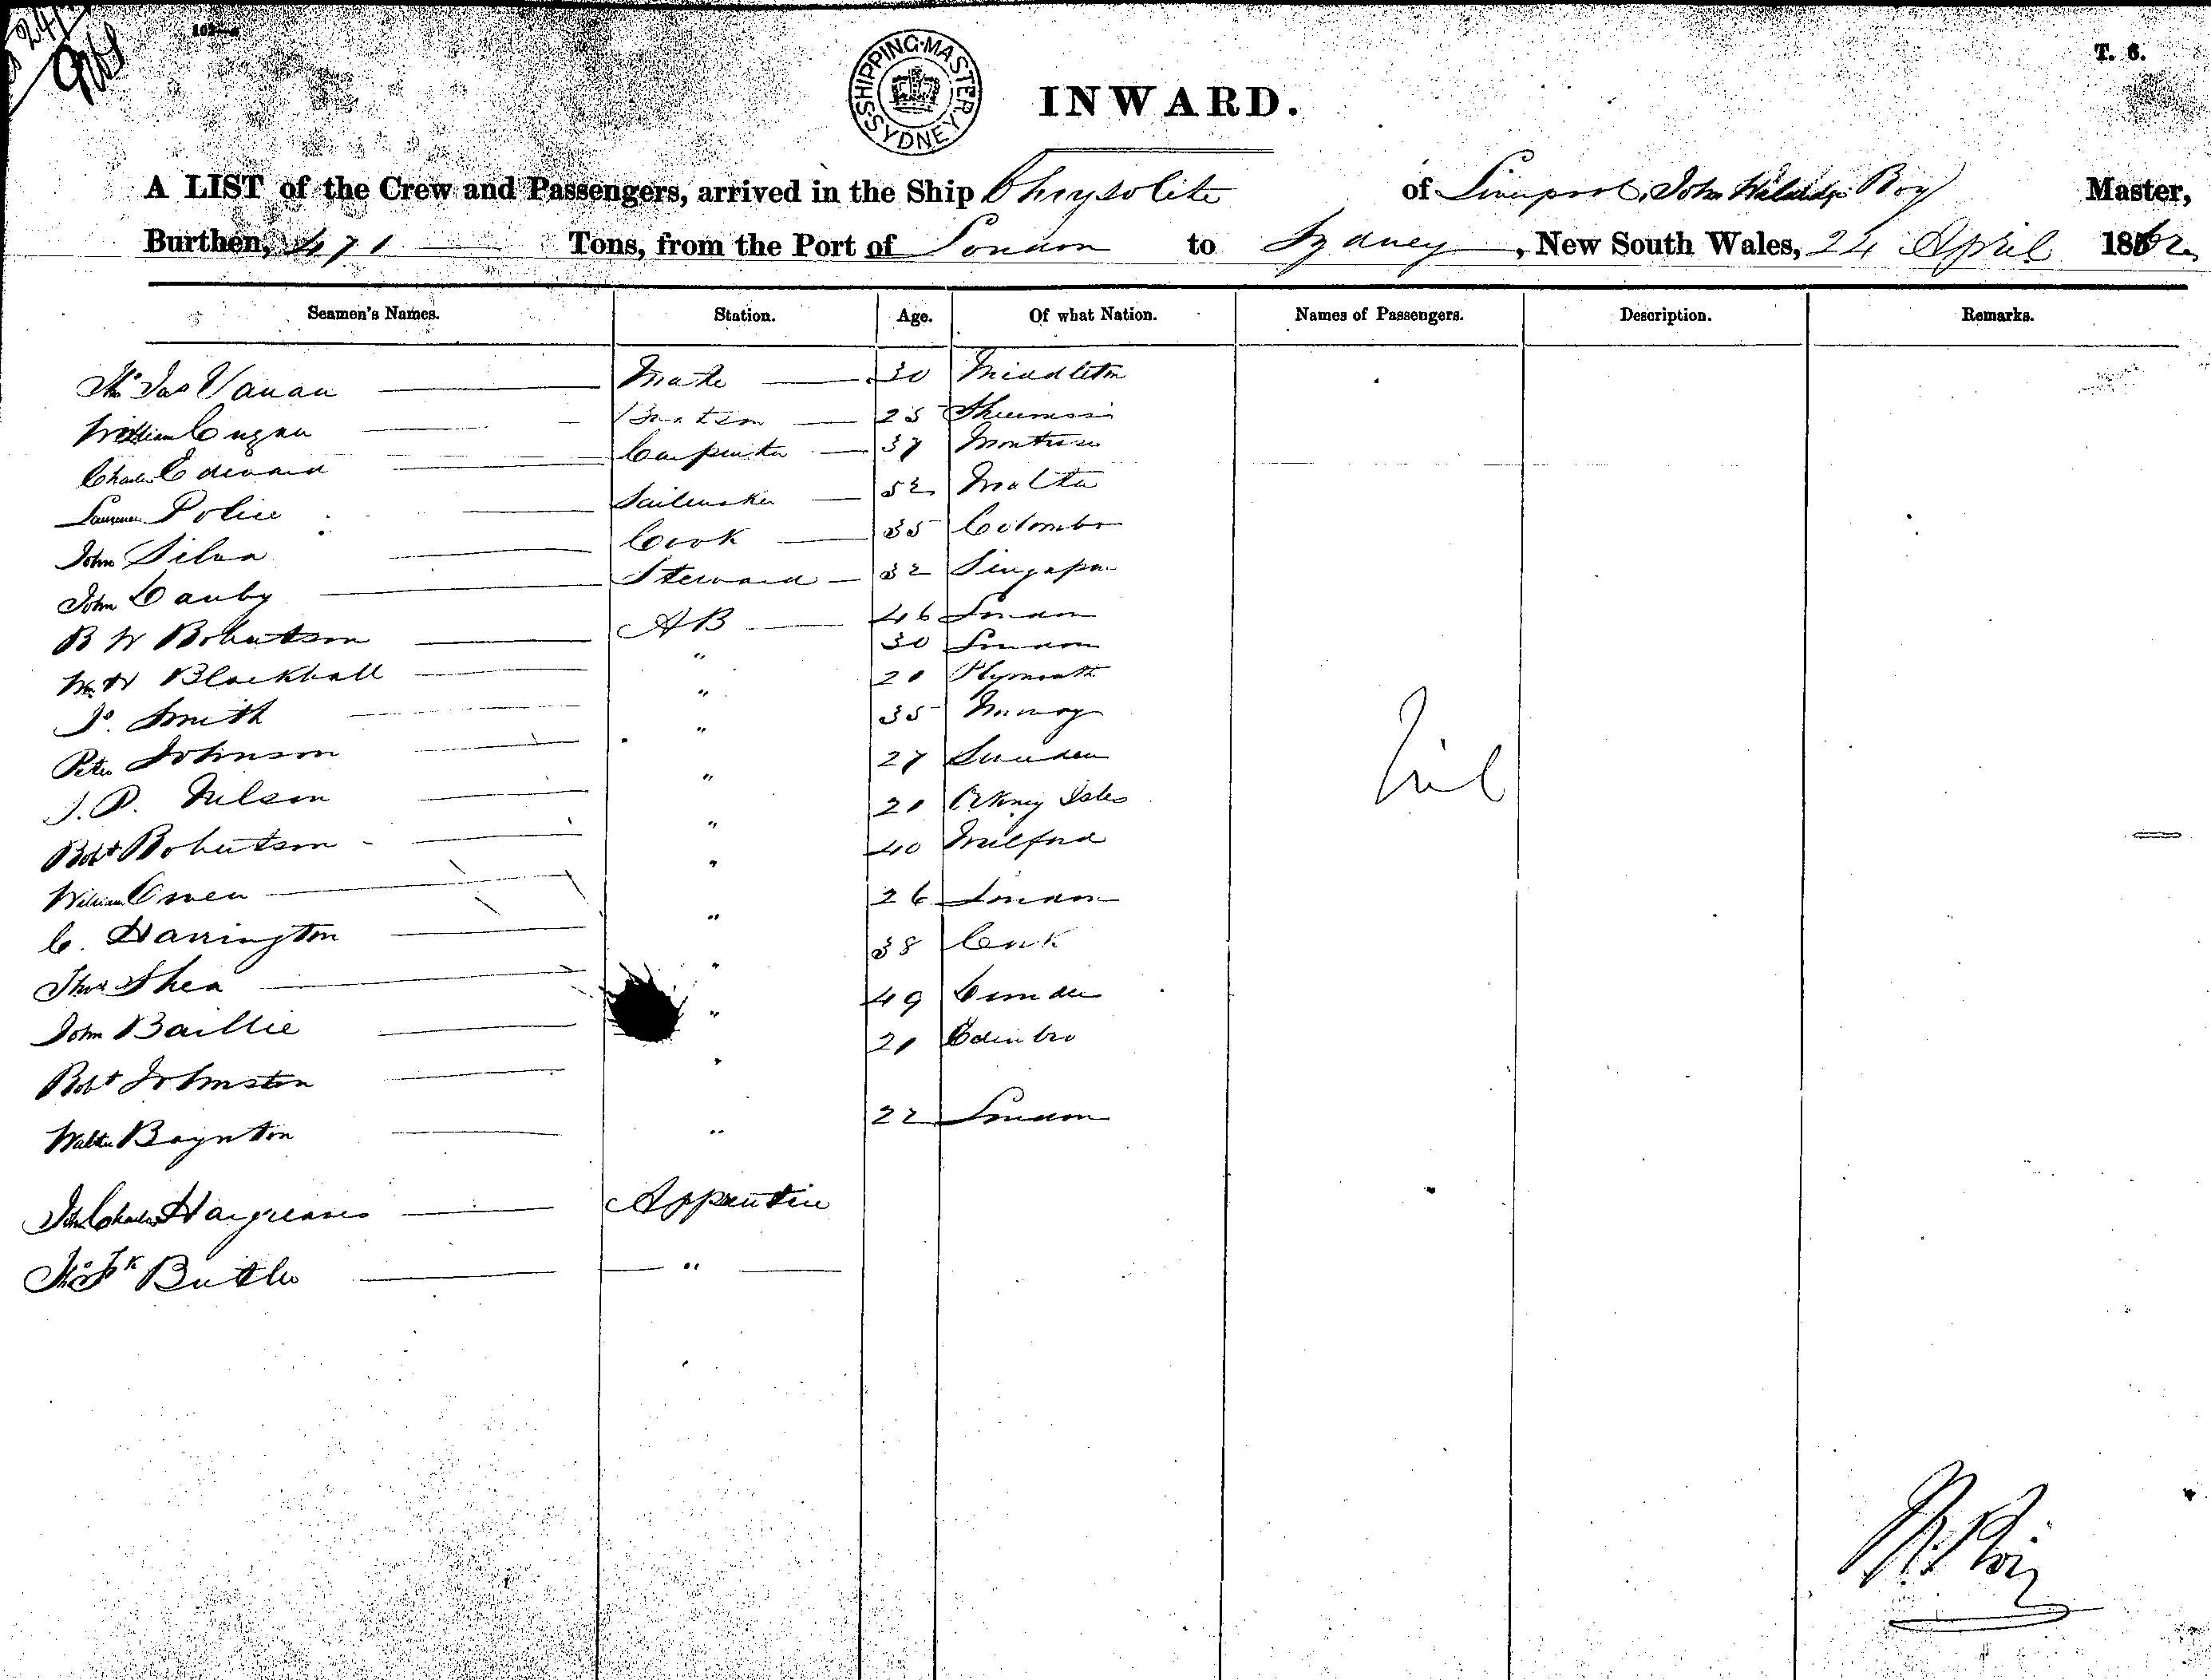 T. 6.
SHIPPING·MASTER·SYDNEY
INWARD.
A LIST of the Crew and Passengers, arrived in the Ship Chrysolite of Liverpool, John Roy Master,
Burthen, 471 Tons, from the Port of London to Sydney, New South Wales, 24 April 1862
Seamen's Names. Station. Age. Of what Nation. Names of Passengers. Description. Remarks.
Jas Mate 30 Middleton
William 25
Charles Edward Carpenter 37 Montrose
Police Sailmaker 52 Malta
John Silva Cook 35 Colombo
John Canby Steward 32
B W Robertson AB 46 London
Wm H Blackhall " 30 London
Jo. Smith " 21 Plymouth
Peter Johnson " 35 Norway
J. P. Nilson " 27 Sweden
Robt Robertson " 21 Orkney Isles
William Owen " 40 Milford
C. Harrington " 26 London
Thos Shea " 38 Cork
John Baillie " 49 Dundee
Robt Johnston " 21 Edinbro
Walter Boynton " 22 London
John Charles Hargreaves Apprentice
Butler "
Nil